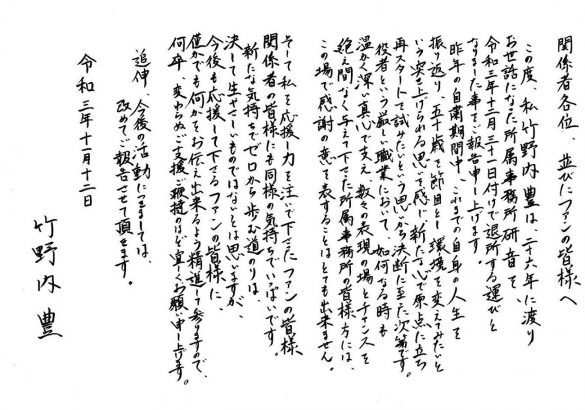 関係者各位、並びにファンの皆様へ
この度、私竹野内豊は、二十六年に渡り
お世話になった所属事務所研音を、
令和三年十二月三十一日付けで退所する運びと
なりました事をご報告申し上げます。
昨年の自粛期間中、これまでの自身の人生を
振り返り、五十歳を節目とし環境を変えてみたいと
いう突き上げられる思いを感じ新たな心で原点に立ち
再スタートして試みたいという思いから決断に至った次第です。
役者という厳しい職業において、如何なる時も
温かく深い真心で支え数々の表現の場とチャンスを
絶え間なく与えて下さった所属事務所の皆様方には、
この場で感謝の意を表することはとても出来ません。
そして私を応援し力を注いで下さったファンの皆様、
関係者の皆様にも同様の気持ちでいっぱいです。
新たな気持ちでゼロから歩む道のりは、
決して生やさしいものではないとは思いますが、
今後も応援して下さるファンの皆様に、
僅かでも何かをお伝え出来るよう精進して参りますので、
何卒、変わらぬご支援ご
程宜しくお願い申し上げます。
追伸 今後の活動につきましては、
改めてご報告させて頂きます。
令和三年十二月十二日
竹野内 豊